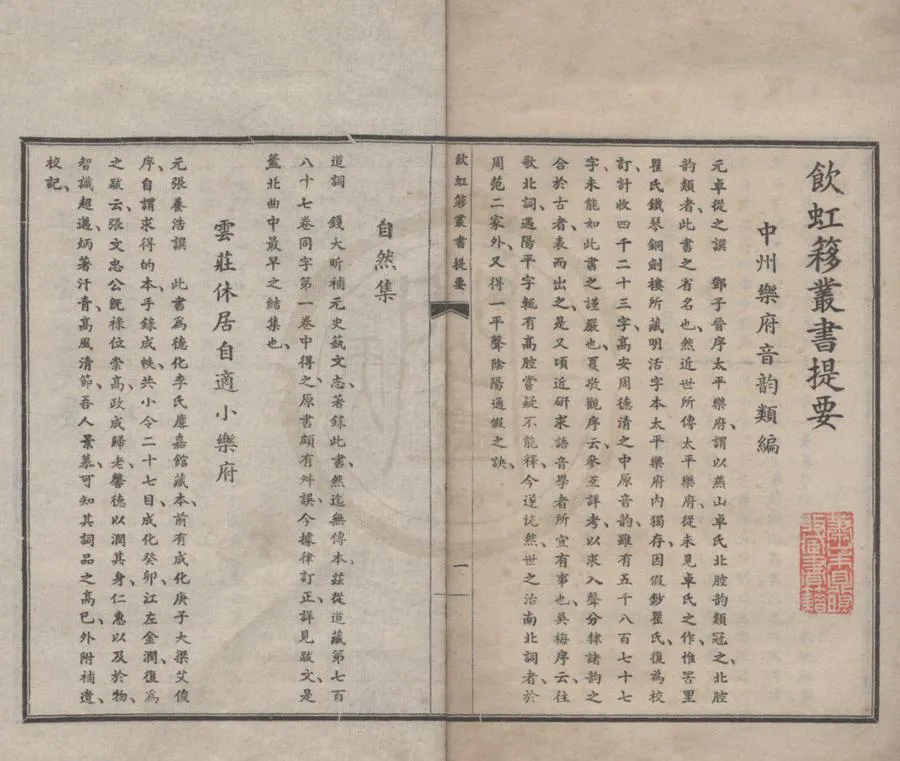 飲虹簃叢書提要
中州樂府音韵類編
元卓從之譔　鄧子晉序太平樂府、謂以燕山卓氏北腔韵類冠之、北腔
韵類者、此書之省名也、然近世所傳太平樂府、從未見卓氏之作、惟罟里
瞿氏鐵琴銅劍樓所藏明活字本太平樂府內獨存、因假鈔瞿氏、復為校
訂、計收四千二十三字、高安周德清之中原音韵、雖有五千八百七十七
字、未能如此書之謹嚴也、夏敬觀序云、參互詳考、以求入聲分隸諸韵之
合於古者、表而出之、是又頃近研求語音學者所宜有事也、吳梅序云、往
歌北詞、遇陽平字輒有高腔、嘗疑不能釋、今遂恍然、世之治南北詞者、於
周范二家外、又得一平聲陰陽通假之訣、
飲虹簃叢書提要
一
自然集
道詞　錢大昕補元史藝文志、著錄此書、然迄無傳本、茲從道藏第七百
八十七卷同字第一卷中得之、原書頗有舛誤、今據律訂正、詳見跋文、是
蓋北曲中最早之結集也、
雲莊休居自適小樂府
元張養浩譔　此書為德化李氏廛嘉館藏本、前有成化庚子大梁艾俊
序、自謂求得的本、手錄成帙、共小令二十七目、成化癸卯、江左金潤復為
之跋云、張文忠公既祿位崇高、政成歸老、馨德以潤其身、仁惠以及於物、
智識超邁、炳著汗青、高風清節、吾人景慕、可知其詞品之高已、外附補遺、
校記、